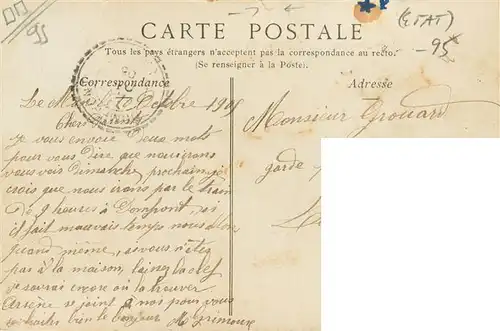 95
(ETAT)
-95
CARTE POSTALE
Tous les pays étrangers n'acceptent pas la correspondance au recto.
(Se renseigner à la Poste).
Correspondance
Adresse
Le Octobre 1905
Chers
Je vous envoie deux mots
pour vous dire que nous irons
vous voir Dimanche prochain, je
crois que nous irons par le train
de 9 heures à Domfront, si
il fait mauvais temps nous irons
quand même, si vous n'êtez
pas à la maison, la clef
je saurai encore où la trouver.
Arsène se joint à nos pour vous
souhaiter bien le bonjour M Grimoux
Monsieur Grouard
garde